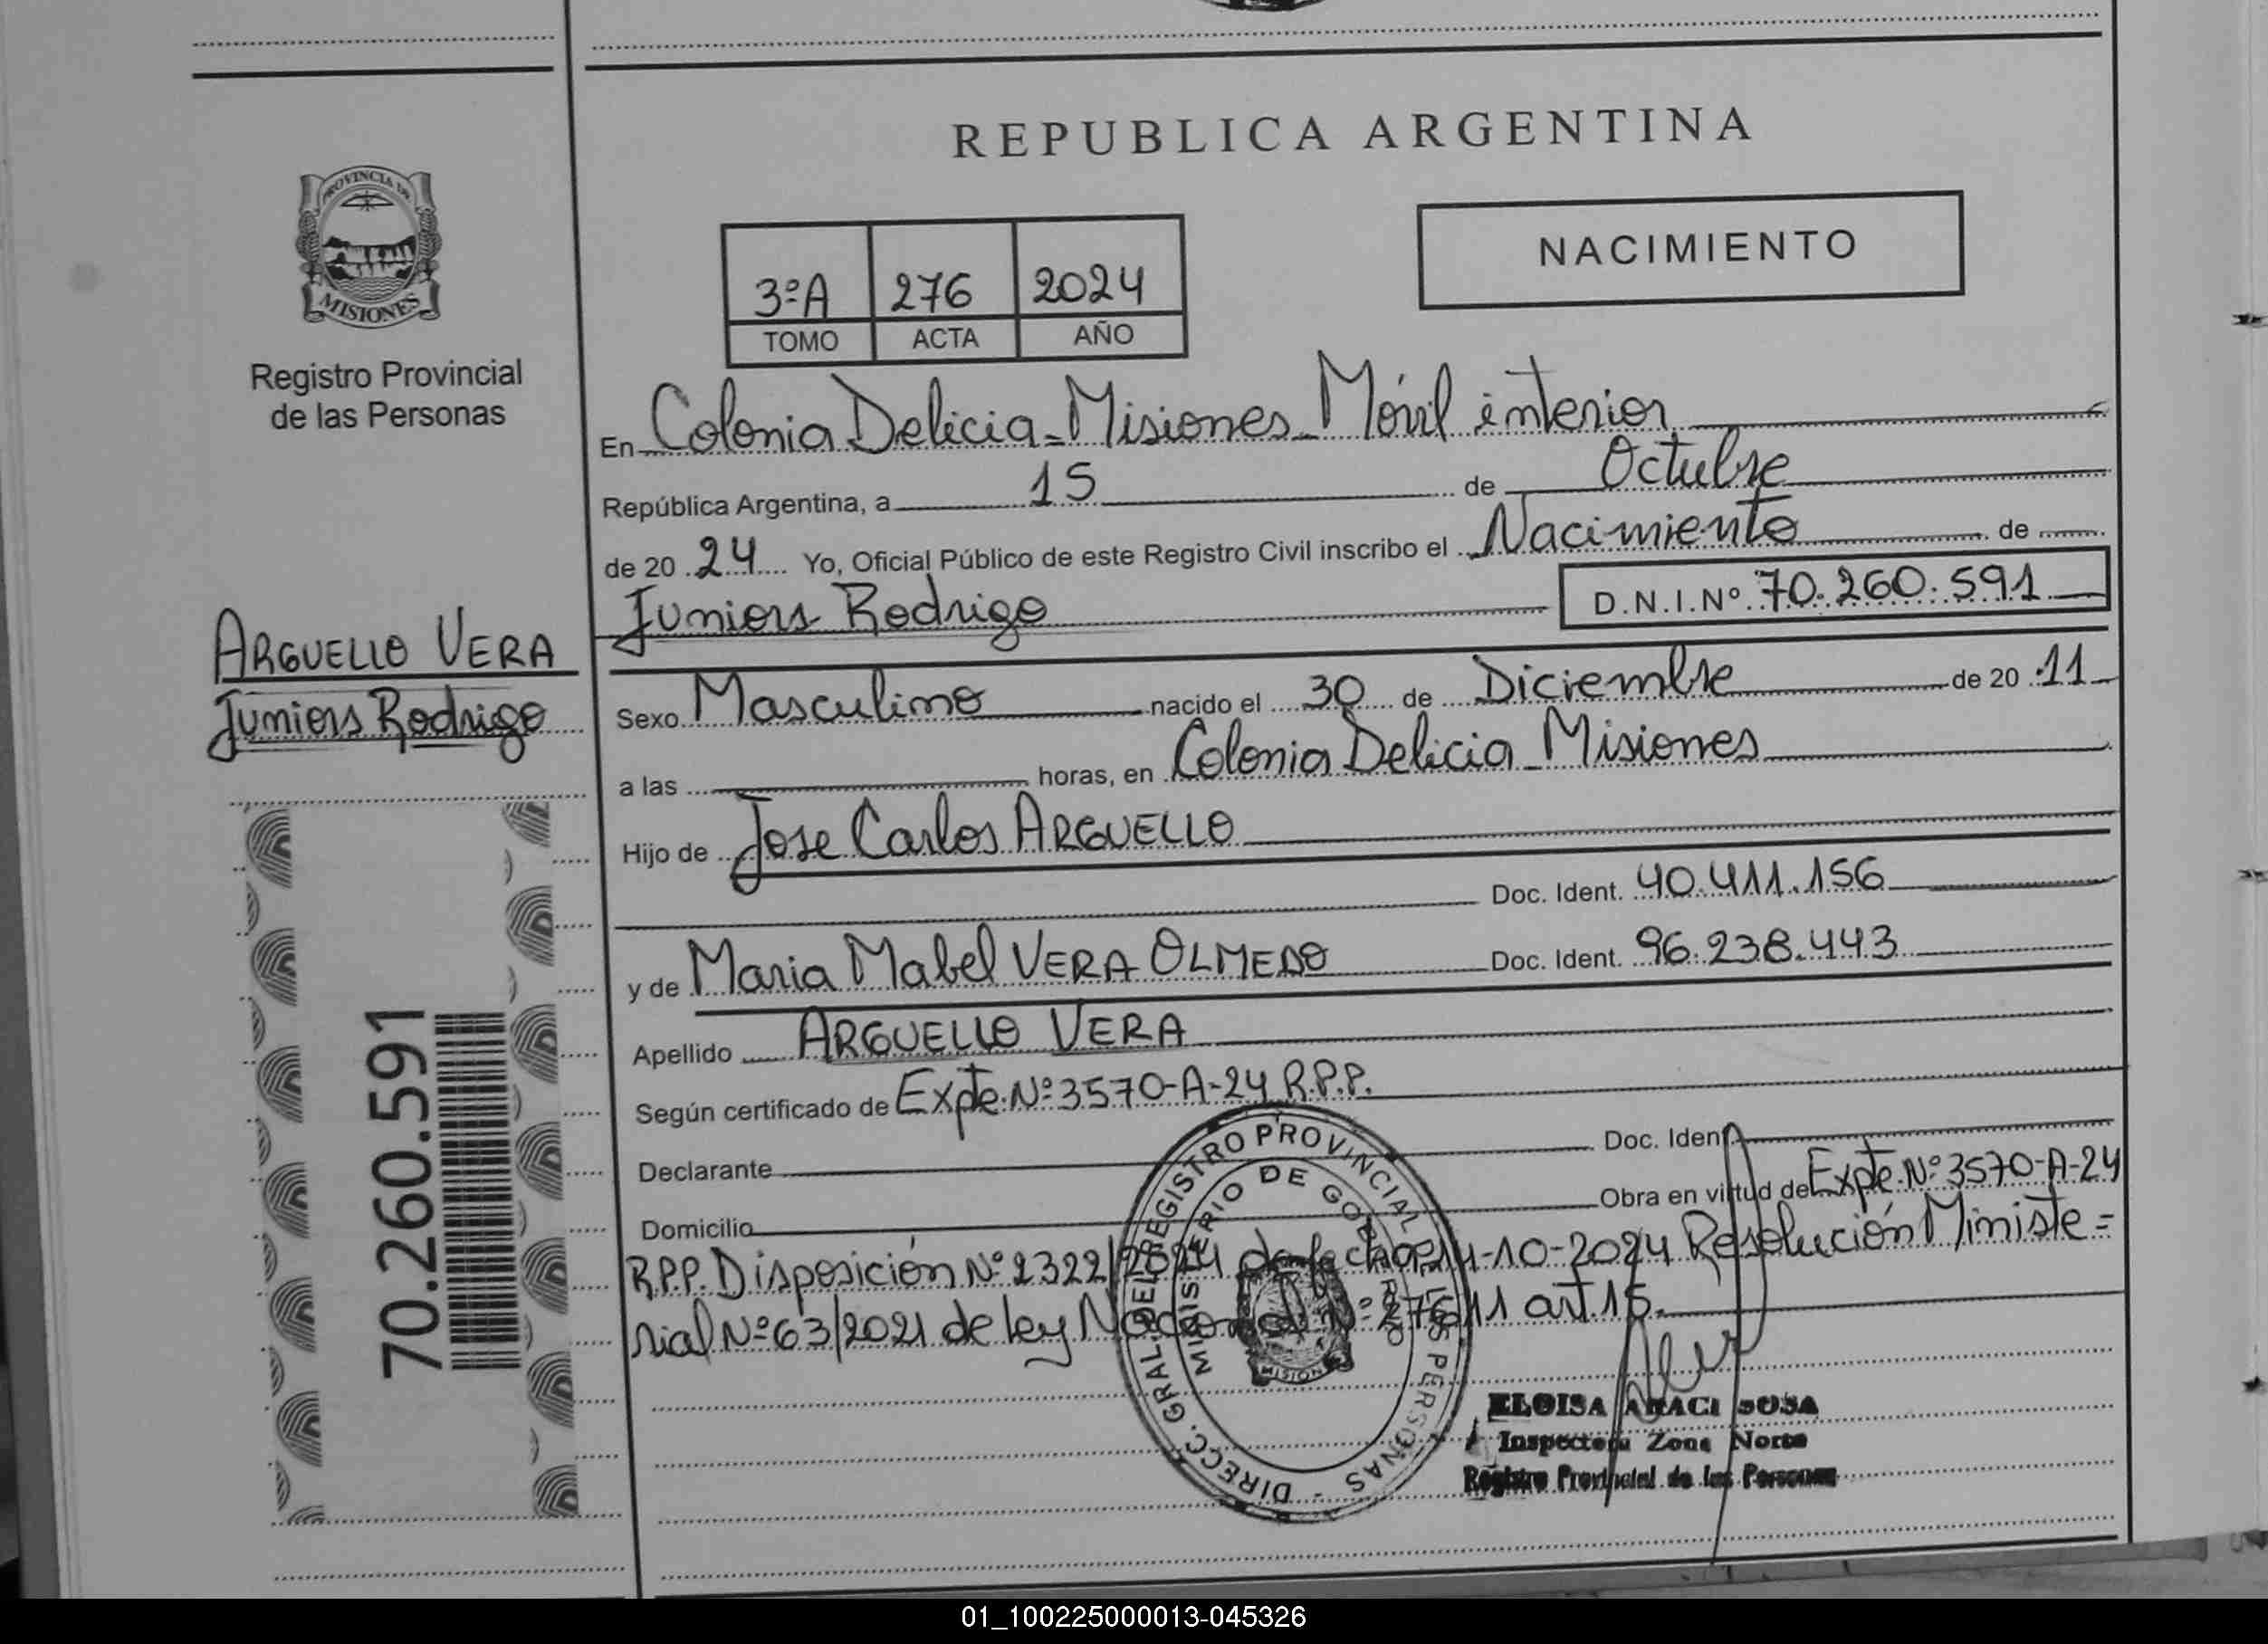 REPUBLICA ARGENTINA
PROVINCIA DE
MISIONES
Registro Provincial
de las Personas
3ºA 276 2024
TOMO ACTA AÑO
NACIMIENTO
En Colonia Delicia - Misiones - Móvil interior
República Argentina, a 15 de Octubre
de 20 24 Yo, Oficial Público de este Registro Civil inscribo el Nacimiento de
Juniors Rodrigo D.N.I.Nº 70.260.591
ARGUELLO VERA
Juniors Rodrigo
Sexo Masculino nacido el 30 de Diciembre de 20 11
a las horas, en Colonia Delicia - Misiones
Hijo de Jose Carlos ARGUELLO
Doc. Ident. 40.411.156
y de Maria Mabel VERA OLMEDO Doc. Ident. 96.238.443
Apellido ARGUELLO VERA
Según certificado de Expte. Nº 3570-A-24 R.P.P.
Declarante Doc. Ident.
Domicilio Obra en virtud de Expte. Nº 3570-A-24
R.P.P. Disposición Nº 2322/2024 de fecha 14-10-2024 Resolución Ministe=
rial Nº 63/2021 de ley Nacional Nº 27611 art. 15.
70.260.591
DIRECC. GRAL. DEL REGISTRO PROVINCIAL DE LAS PERSONAS -
MINISTERIO DE GOBIERNO
MISIONES
ELOISA ARACI SOSA
Inspectora Zona Norte
Registro Provincial de las Personas
01_100225000013-045326